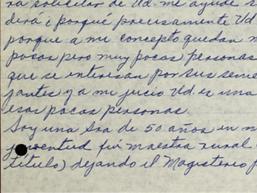 ra solicitar de Ud. me ayude s
dirá ¿porqué precisamente Ud
porque a mi concepto quedan m
pocas pero muy pocas personas
que se interesan por sus seme
jantes y a mi juicio Ud. es una
esas pocas personas.
Soy una Sra de 50 años en m
juventud fuí maestra rural
título) dejando el Magisterio p